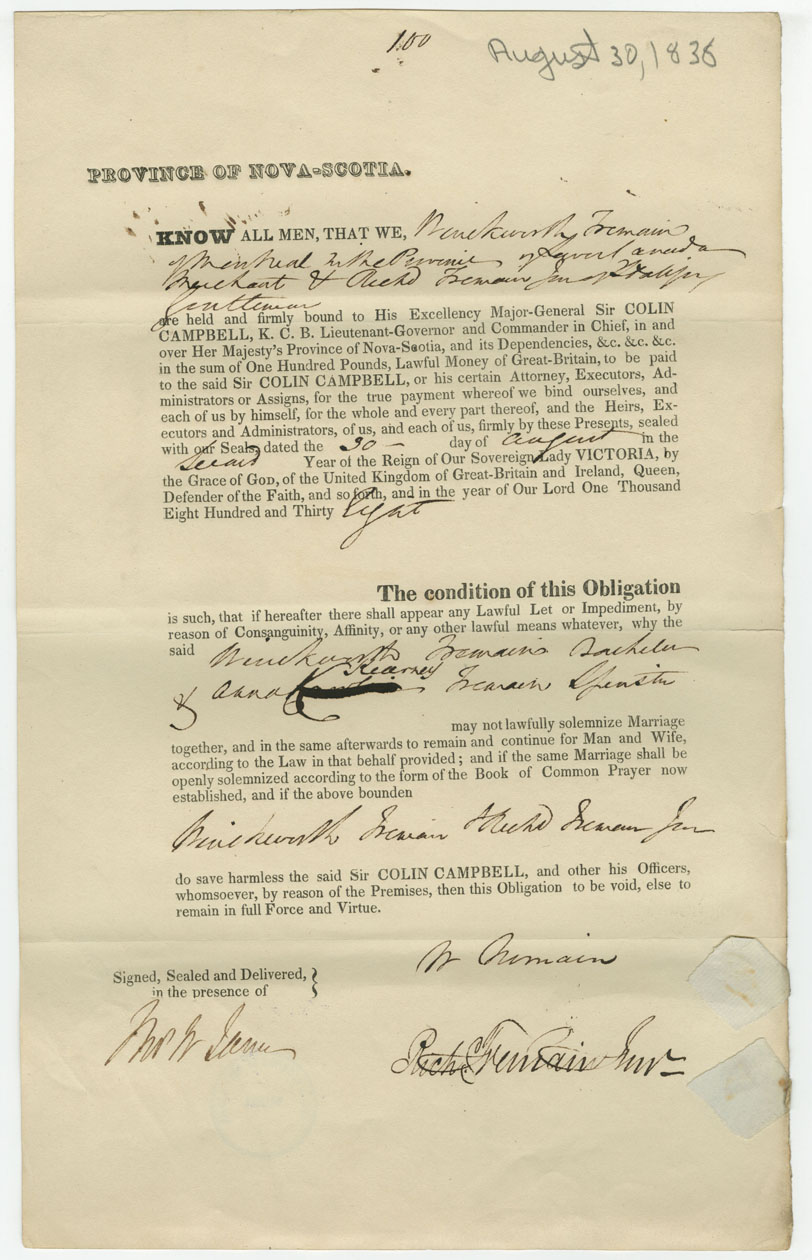 100
August 30, 1838
PROVINCE OF NOVA-SCOTIA.
KNOW ALL MEN, THAT WE, Winckworth Tremain
of Montreal in the Province of Lower Canada
Merchant & Richd Tremain Jun of Halifax
Gentleman
are held and firmly bound to His Excellency Major-General Sir COLIN
CAMPBELL, K. C. B. Lieutenant-Governor and Commander in Chief, in and
over Her Majesty's Province of Nova-Scotia, and its Dependencies, &c. &c. &c.
in the sum of One Hundred Pounds, Lawful Money of Great-Britain, to be paid
to the said Sir COLIN CAMPBELL, or his certain Attorney, Executors, Ad-
ministrators or Assigns, for the true payment whereof we bind ourselves, and
each of us by himself, for the whole and every part thereof, and the Heirs, Ex-
ecutors and Administrators, of us, and each of us, firmly by these Presents, sealed
with our Seals, dated the 30 - day of August in the
Second Year of the Reign of Our Sovereign Lady VICTORIA, by
the Grace of GOD, of the United Kingdom of Great-Britain and Ireland, Queen,
Defender of the Faith, and so forth, and in the year of Our Lord One Thousand
Eight Hundred and Thirty Eight
The condition of this Obligation
is such, that if hereafter there shall appear any Lawful Let or Impediment, by
reason of Consanguinity, Affinity, or any other lawful means whatever, why the
said Winckworth Tremain Bachelor
Kearney
& Anna Tremain Spinster
may not lawfully solemnize Marriage
together, and in the same afterwards to remain and continue for Man and Wife,
according to the Law in that behalf provided; and if the same Marriage shall be
openly solemnized according to the form of the Book of Common Prayer now
established, and if the above bounden
Winckworth Tremain & Richd Tremain Jun
do save harmless the said Sir COLIN CAMPBELL, and other his Officers,
whomsoever, by reason of the Premises, then this Obligation to be void, else to
remain in full Force and Virtue.
W Tremain
Signed, Sealed and Delivered,
in the presence of
Thos W James
Richd Tremain Junr